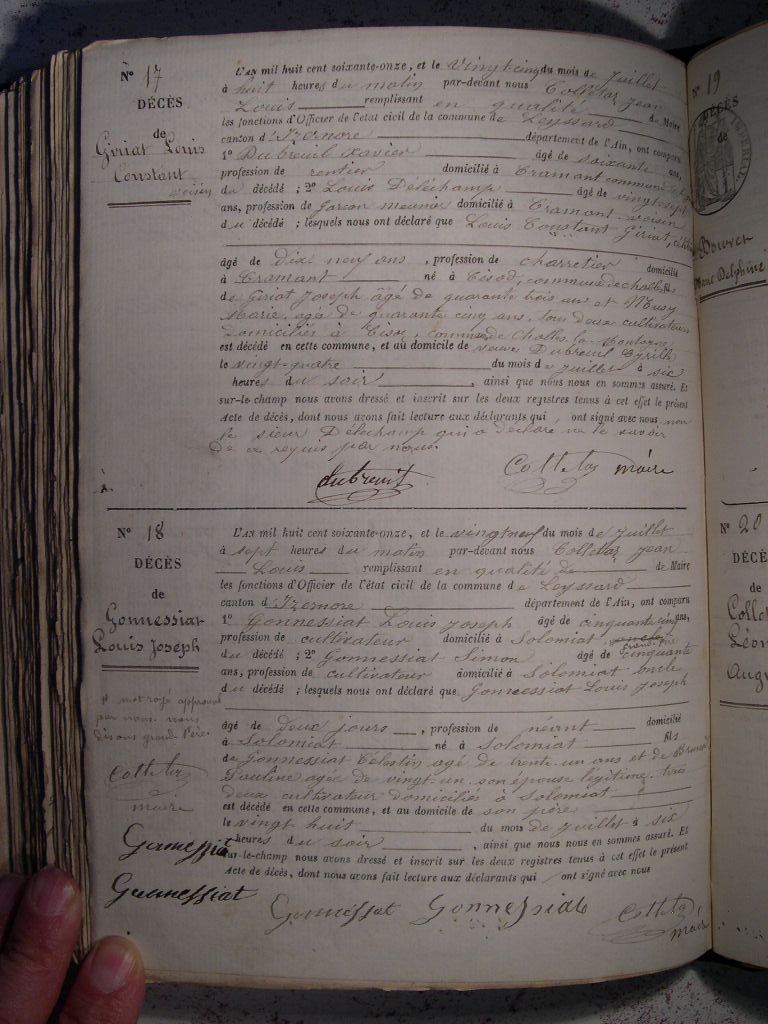 N° 17
DÉCÈS
de
Giriat Louis
Constant
L'AN mil huit cent soixante-onze, et le Vingt cinq du mois de Juillet
à huit heures du matin par-devant nous Colletaz Jean
Louis remplissant en qualité de Maire
les fonctions d'Officier de l'état civil de la commune de Leyssard
canton d'Izernore département de l'Ain, ont comparu
1° Dubreuil Xavier âgé de soixante ans,
profession de rentier domicilié à Cramant commune de
voisin
du décédé ; 2° Louis Deléchamp âgé de vingt sept
ans, profession de garçon meunier domicilié à Cramant voisin
du décédé ; lesquels nous ont déclaré que Louis Constant Giriat,
âgé de dix neuf ans, profession de charretier domicilié
à Cramant né à Cisod, commune de challes fils
de Giriat Joseph âgé de quarante trois ans et Musy
Marie, agée de quarante cinq ans, tous deux cultivateurs
domiciliés à Cisod, commune de Challes la Montagne
est décédé en cette commune, et au domicile de veuve Dubreuil Cyrille
le vingt-quatre du mois de juillet à six
heures du soir, ainsi que nous nous en sommes assuré. Et
sur-le-champ nous avons dressé et inscrit sur les deux registres tenus à cet effet le présent
Acte de décès, dont nous avons fait lecture aux déclarants qui ont signé avec nous non
le sieur Deléchamp qui a déclaré ne le savoir
de ce requis par nous.
dubreuil Colletaz maire
N° 18
DÉCÈS
de
Gonnessiat
Louis Joseph
L'AN mil huit cent soixante-onze, et le vingt neuf du mois de Juillet
à sept heures du matin par-devant nous Colletaz Jean
Louis remplissant en qualité de de Maire
les fonctions d'Officier de l'état civil de la commune de Leyssard
canton d'Izernore département de l'Ain, ont comparu
1° Gonnessiat Louis Joseph âgé de cinquante cinq ans,
profession de cultivateur domicilié à Solomiat oncle
grand père
du décédé ; 2° Gonnessiat Simon âgé de cinquante
ans, profession de cultivateur domicilié à Solomiat oncle
du décédé ; lesquels nous ont déclaré que Gonnessiat Louis Joseph
âgé de deux jours, profession de néant domicilié
à Solomiat né à Solomiat fils
de Gonnessiat Célestin agé de trente un ans et de
Pauline agée de vingt un son épouse légitime, tous
deux cultivateur domiciliés à Solomiat
est décédé en cette commune, et au domicile de son père
le vingt huit du mois de Juillet à six
heures du soir, ainsi que nous nous en sommes assuré. Et
sur-le-champ nous avons dressé et inscrit sur les deux registres tenus à cet effet le présent
Acte de décès, dont nous avons fait lecture aux déclarants qui ont signé avec nous
1 mot rayé approuvé
par nous. nous
disons grand Père.
Colletaz
maire
Gonnessiat
Gonnessiat
Gonnessiat Gonnessiat Colletaz
maire
N° 19
DÉCÈS
de
N° 20
DÉCÈ
de